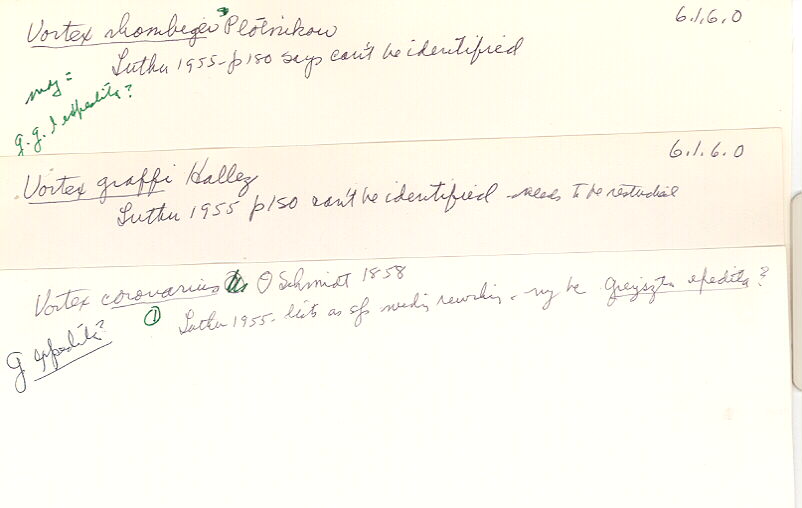 Vortex rhombeger Plotnikow 6.1.6.0
Luther 1955 - p 150 says can't be identified
may =
g. g. expedita?
Vortex graffi Hallez 6.1.6.0
Luther 1955 p 150 can't be identified - needs to be restudied
Vortex coronarius O Schmidt 1858
① Luther 1955 - lists as sp needing reworking - my be expedita?
G expedita?